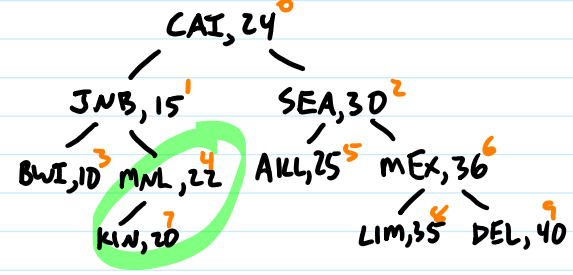 CAI, 24 0
JNB, 15 1 SEA, 30 2
BWI, 10 3 MNL, 22 4 AKL, 25 5 MEX, 36 6
KIN, 20 7 LIM, 35 8 DEL, 40 9